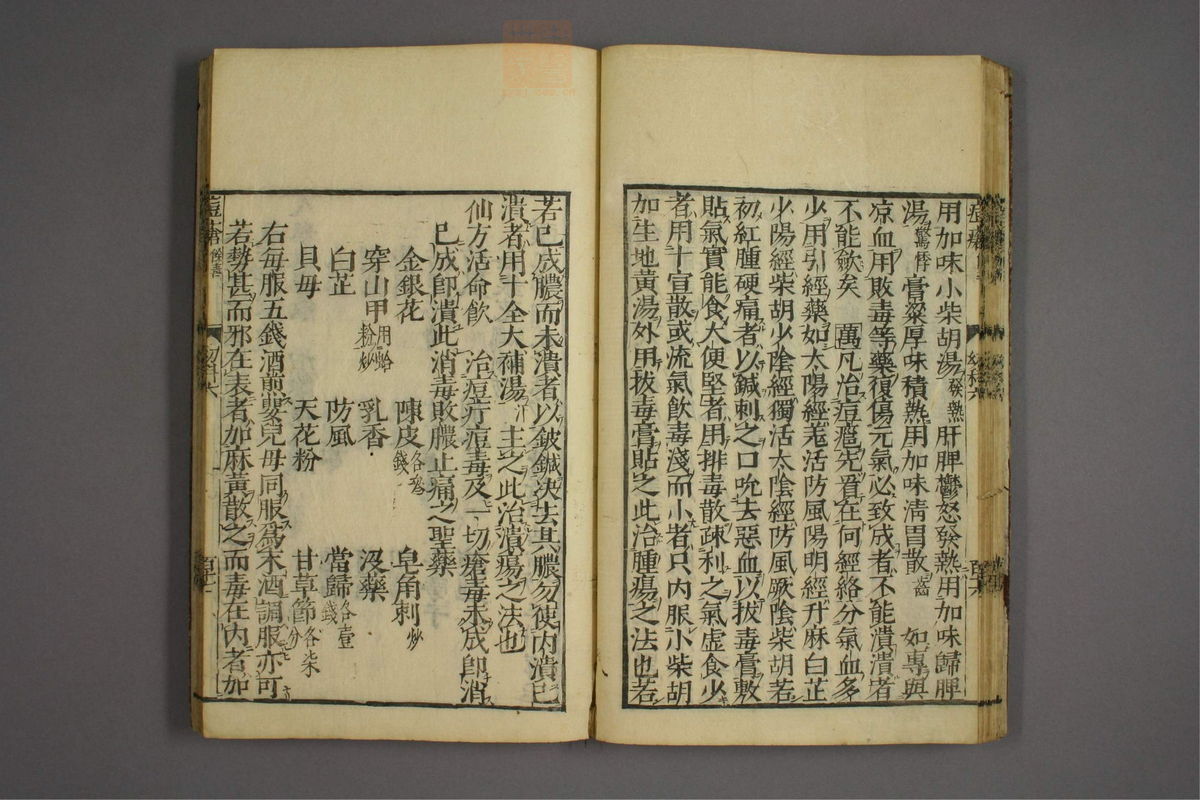 用加味小柴胡湯發熱肝脾鬱怒發熱用加味歸脾
湯驚悸膏粱厚味積熱用加味清胃散齒如專與
凉血用敗毒等藥復傷元氣必致成者不能潰潰者
不能歛矣 萬凡治痘癰先看在何經絡分氣血多
少用引經藥如太陽經羌活防風陽明經升麻白芷
少陽經柴胡少陰經獨活太陰經防風厥陰柴胡若
初紅腫硬痛者以鍼刺之口吮去惡血以拔毒膏敷
貼氣實能食大便堅者用排毒散疎利之氣虛食少
者用十宣散或流氣飲毒淺而小者只内服小柴胡
加生地黃湯外用拔毒膏貼之此治腫瘍之法也若
若已成膿而未潰者以鈹鍼決去其膿勿使内潰已
潰者用十全大補湯汗主之此治潰瘍之法也
仙方活命飲 治痘疔痘毒及一切瘡毒未成卽消
已成卽潰此消毒敗膿止痛之聖藥
金銀花 陳皮各叁錢 皂角刺炒
穿山甲用蛤粉炒 乳香 没藥
白芷 防風 當歸各壹錢
貝母 天花粉 甘草節各柒分
右每服五錢酒煎嬰兒母同服爲末酒調服亦可
若勢甚而邪在表者加麻黃散之而毒在内者加
痘瘡
幼科六